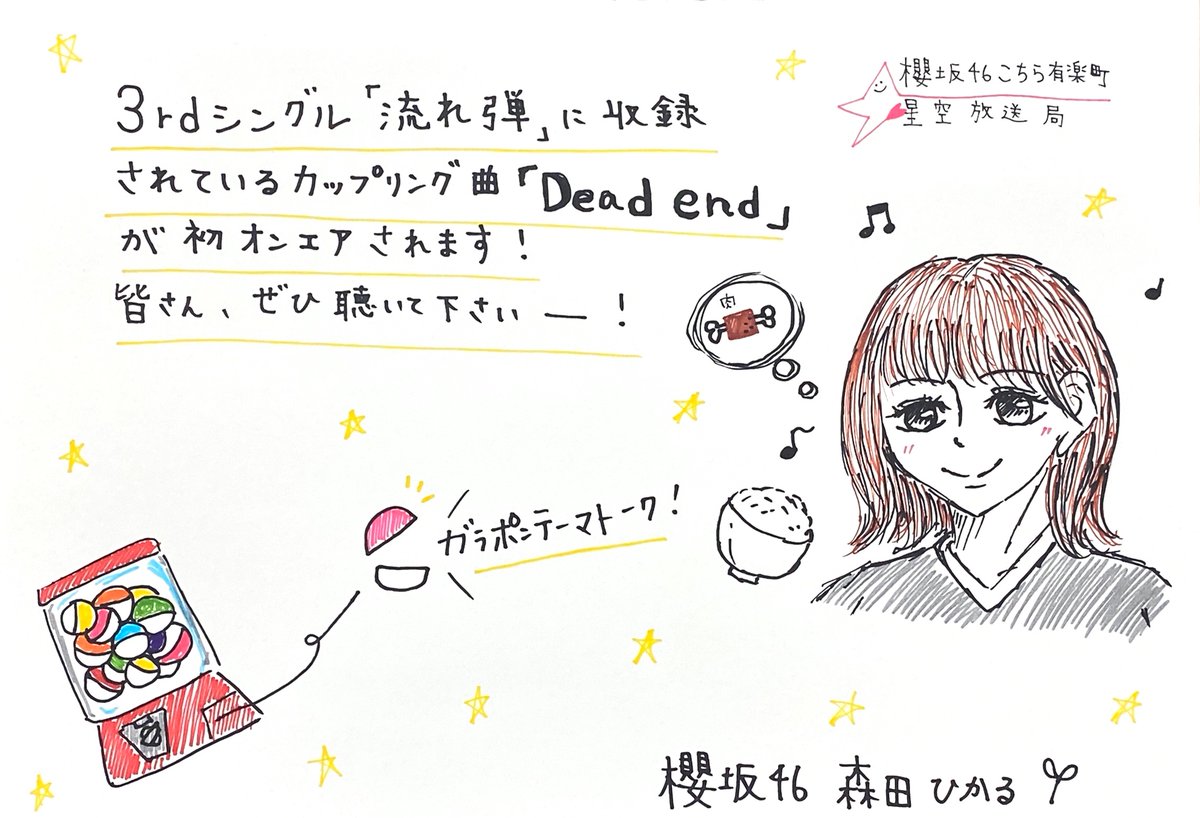 櫻坂46こちら有楽町
星空放送局
3rdシングル「流れ弾」に収録
されているカップリング曲「Dead end」
が初オンエアされます!
皆さん、ぜひ聴いて下さいー!
肉
ガラポンテーマトーク!
櫻坂46 森田ひかる